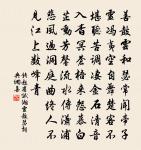 善鼓雲和瑟常聞帝子
靈馮夷空自舞楚客不
堪聽苦調淒金石清音
入杳冥蒼梧來怨慕白
芷動芳馨流水傳瀟浦
悲風過洞庭曲終人不
見江上數峰青
錢起省試湘靈鼓瑟